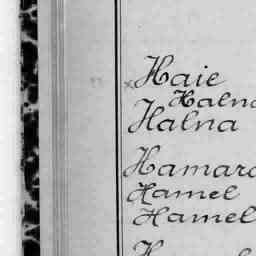 × Haie
Halna
Halna
Hamard
Hamel
Hamel